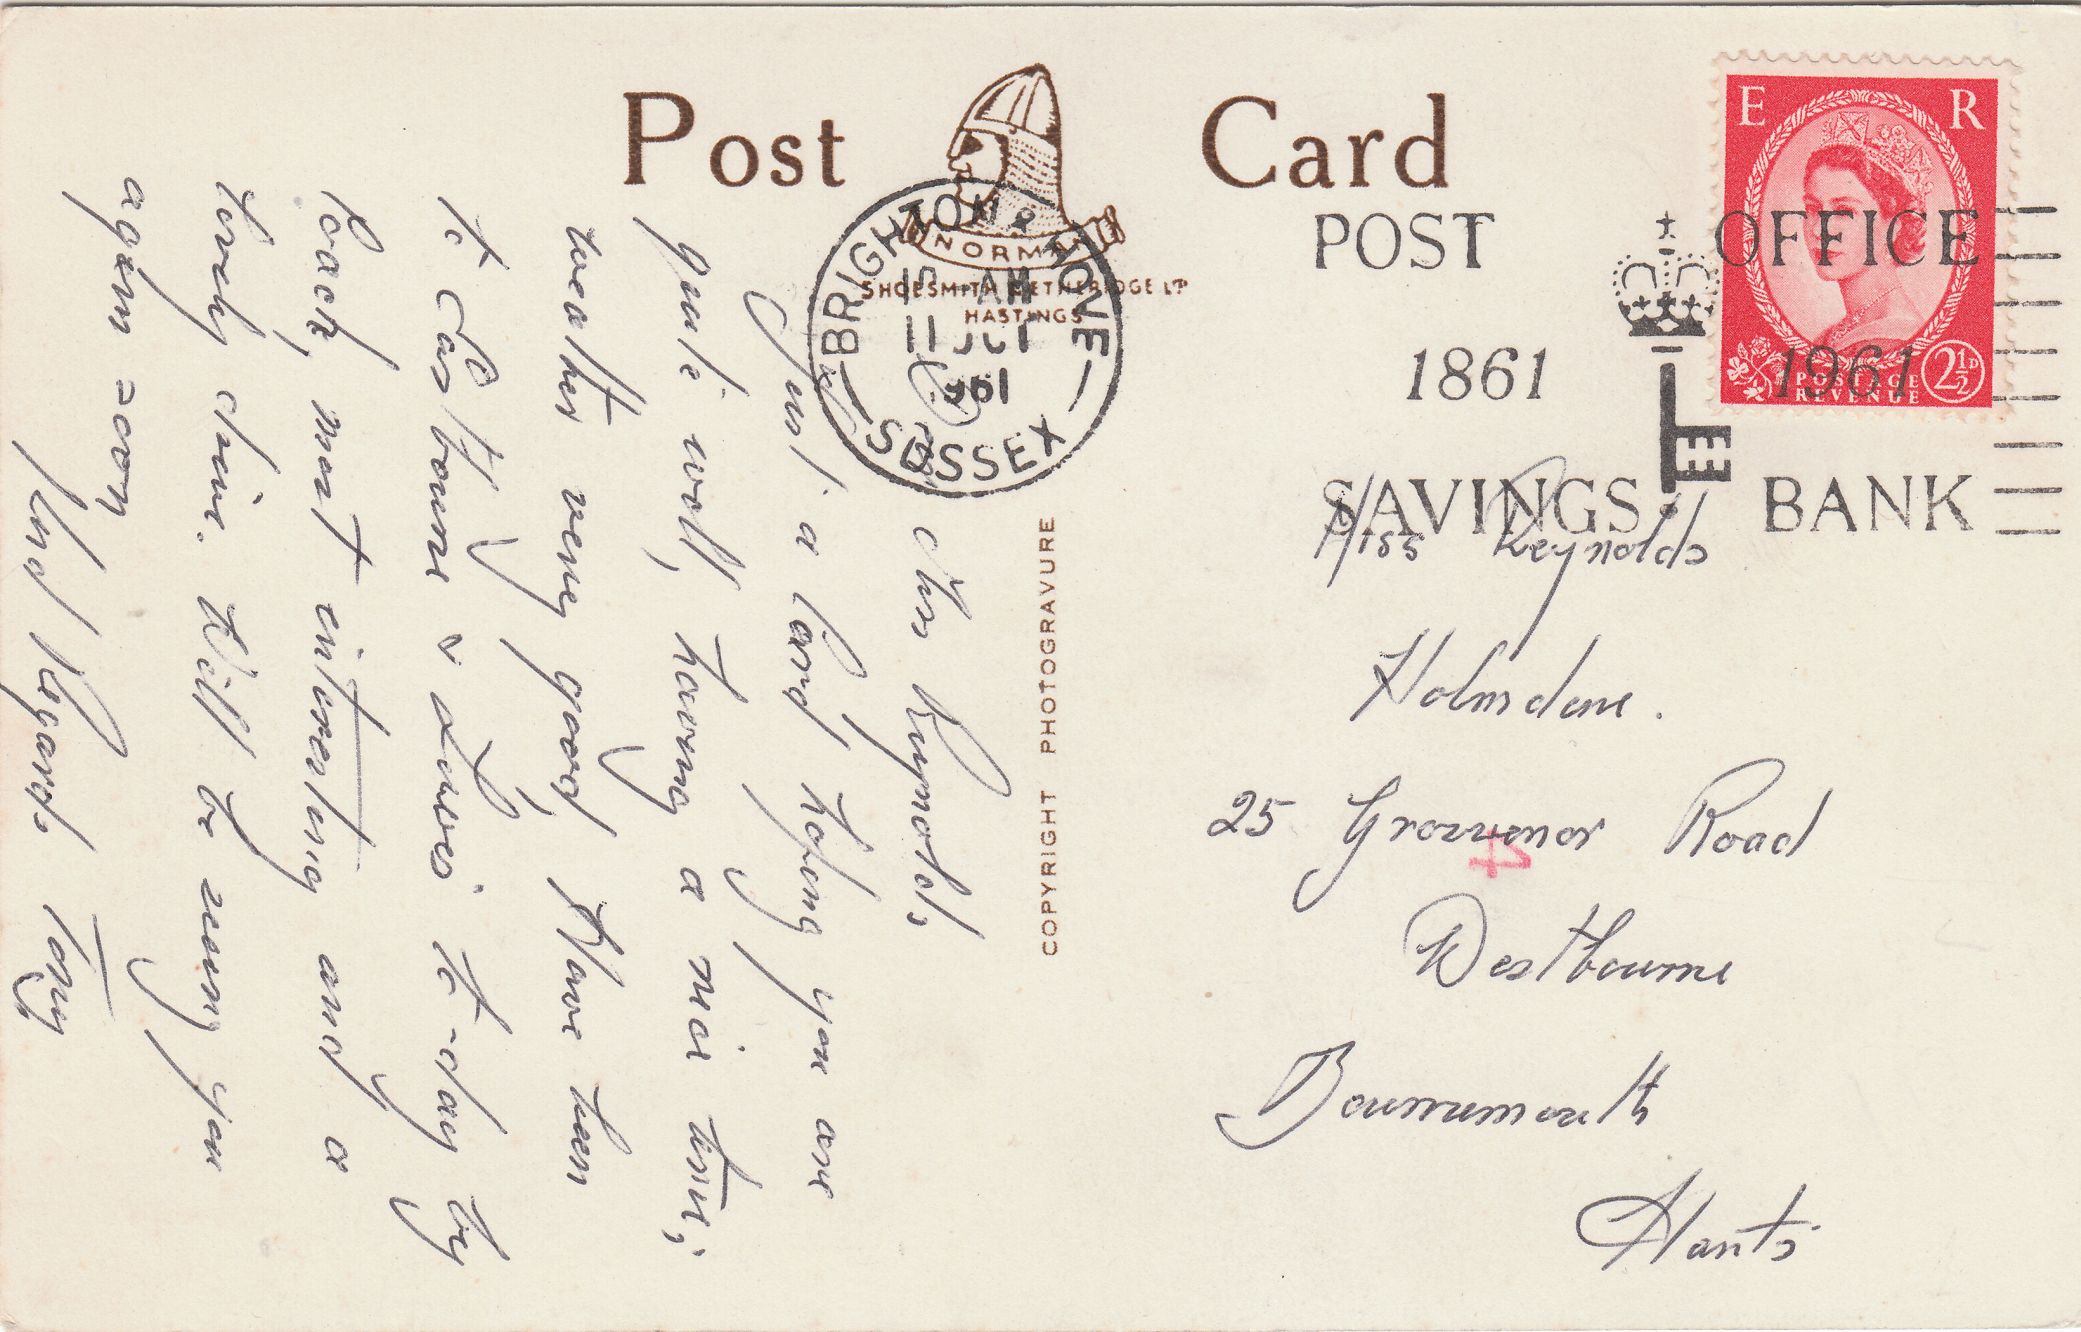 Post Card
NORMAN
SHOESMITH & ETHERIDGE LTD
HASTINGS
BRIGHTON & HOVE
AM
11 OCT
1961
SUSSEX
POST OFFICE
1861 1961
SAVINGS BANK
E R
POSTAGE
REVENUE
2½D
COPYRIGHT PHOTOGRAVURE
Miss Reynolds
Holmdene.
25 Grosvenor Road
Westbourne
Bournemouth
Hants
4
Miss Reynolds,
Just a Card, hoping you are
quite well, having a nice time,
weather very good, Have been
to Eastbourne & Lewes to-day by
Coach, most interesting and a
lovely drive. Will be seeing you
again soon
Kind Regards Tony